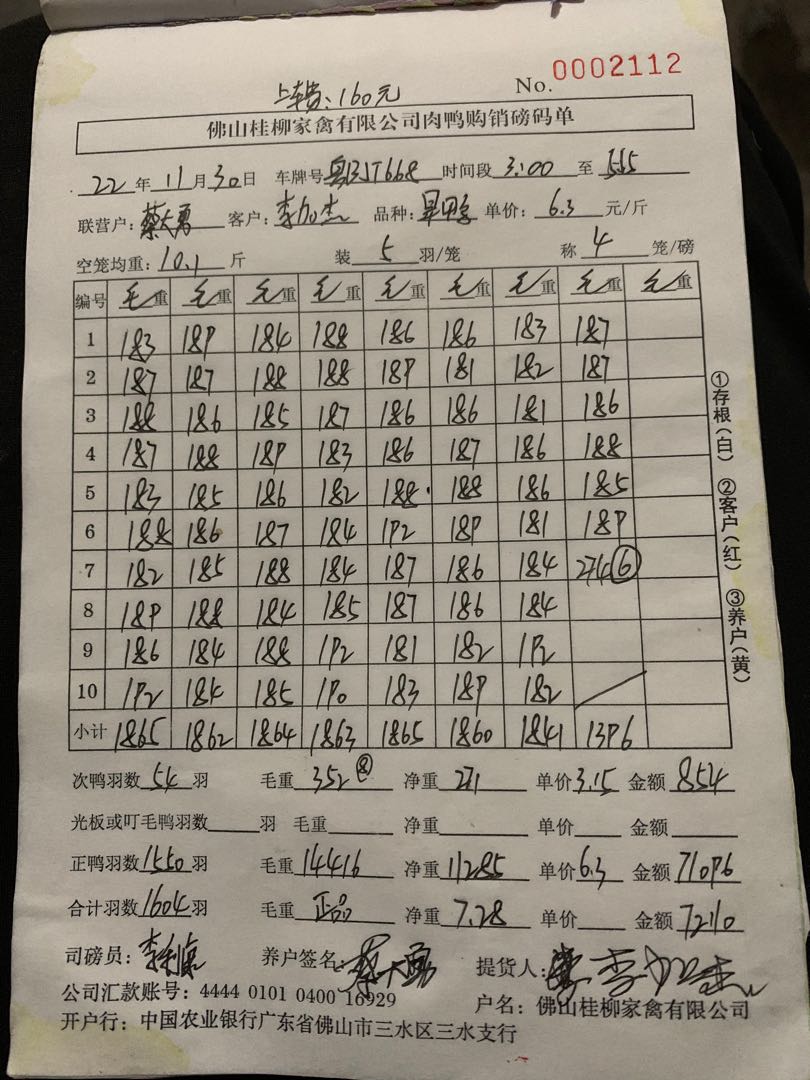 上车费:160元
No. 0002112
佛山桂柳家禽有限公司肉鸭购销磅码单
22年11月30日 车牌号 时间段 3:00 至 555
联营户:蔡大勇 客户:李加杰 品种: 单价:6.3元/斤
空笼均重:10.1斤 装 5 羽/笼 称 4 笼/磅
编号 毛重 毛重 毛重 毛重 毛重 毛重 毛重 毛重 毛重
1 183 189 184 188 186 186 183 187
2 187 187 188 188 189 181 182 187
3 188 186 185 187 186 186 181 186
4 187 188 189 183 186 187 186 188
5 183 185 186 182 188 188 186 185
6 188 186 187 184 192 189 181 189
7 182 185 188 184 187 186 184 274⑥
8 189 188 184 185 187 186 184
9 186 184 188 192 181 182 192
10 192 184 185 190 183 189 182
小计 1865 1862 1864 1863 1865 1860 1841 1396
①存根(白) ②客户(红) ③养户(黄)
次鸭羽数54羽 毛重352⑧ 净重271 单价3.15 金额854
光板或叮毛鸭羽数 羽 毛重 净重 单价 金额
正鸭羽数1550羽 毛重14416 净重11285 单价6.3 金额71096
合计羽数1604羽 毛重 正品 净重7.28 单价 金额72110
司磅员: 养户签名:蔡大勇 提货人:李加杰
公司汇款账号:4444 0101 0400 16929 户名:佛山桂柳家禽有限公司
开户行:中国农业银行广东省佛山市三水区三水支行